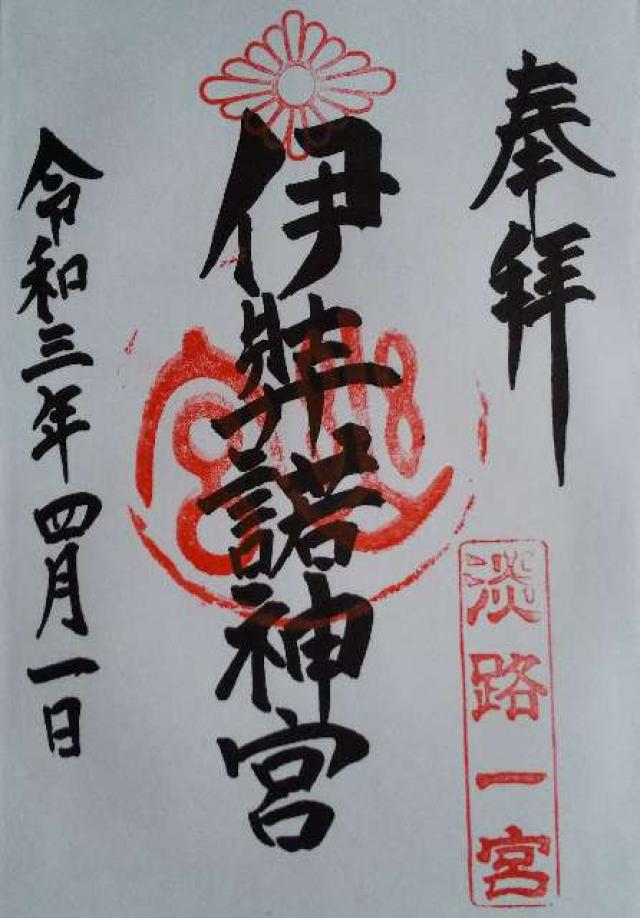 奉拝
淡路一宮
伊弉諾神宮
令和三年四月一日